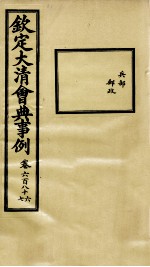 欽定大清會典事例
卷六百八十六七
兵部
郵政